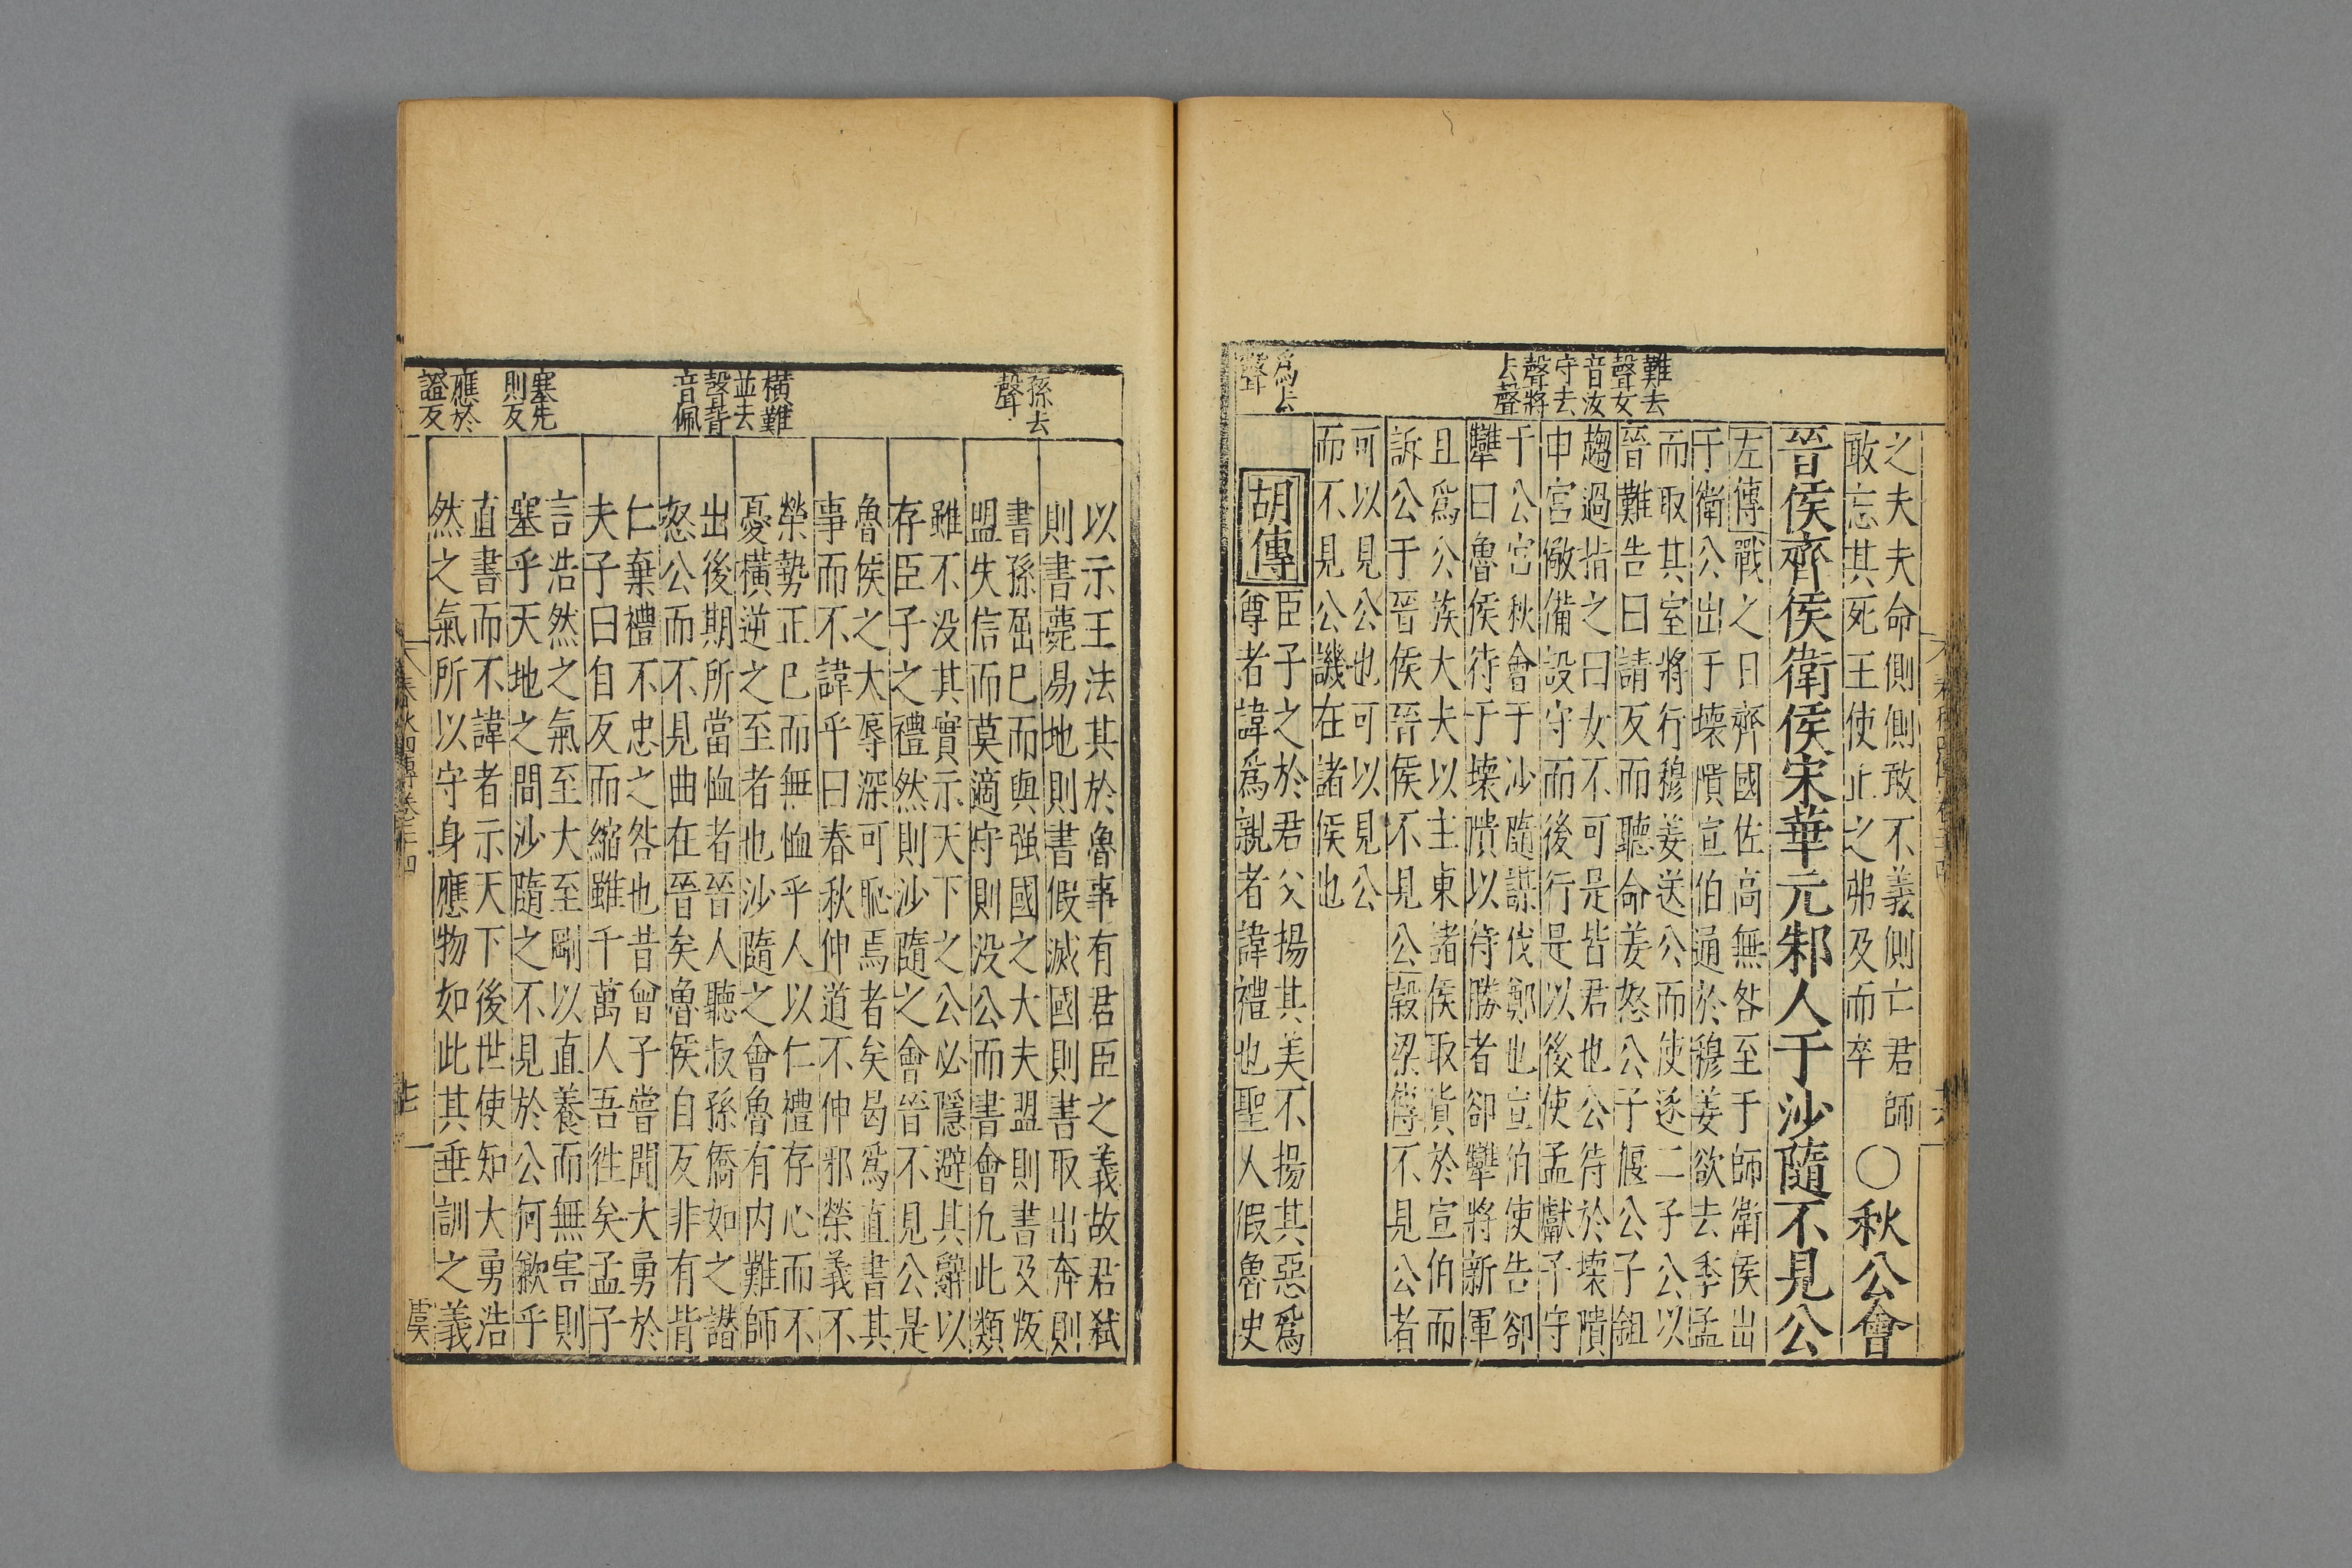 難去
聲女
音汝
守去
聲將
去聲
爲去
聲
之夫夫命側側敢不義側亡君師
敢忘其死王使止之弗及而卒
○秋公會
晉侯齊侯衛侯宋華元邾人于沙隨不見公
左傳戰之日齊國佐高無咎至于師衛侯出
于衛公出于壞隤宣伯通於穆姜欲去季孟
而取其室將行穆姜送公而使逐二子公以
晉難告曰請反而聽命姜怒公子偃公子鉏
趨過指之曰女不可是皆君也公待於壞隤
申宮儆備設守而後行是以後使孟獻子守
于公宮秋會于沙隨謀伐鄭也宣伯使告郤
犨曰魯侯待于壞隤以待勝者郤犨將新軍
且爲公族大夫以主東諸侯取貨於宣伯而
訴公于晉侯晉侯不見公穀梁傳不見公者
可以見公也可以見公
而不見公譏在諸侯也
胡傳
臣子之於君父揚其美不揚其惡爲
尊者諱爲親者諱禮也聖人假魯史
孫去
聲
橫難
並去
聲背
音佩
塞先
則反
應於
證反
以示王法其於魯事有君臣之義故君弒
則書薨易地則書假滅國則書取出奔則
書孫屈已而與强國之大夫盟則書及叛
盟失信而莫適守則没公而書會凡此類
雖不没其實示天下之公必隱避其辭以
存臣子之禮然則沙隨之會晉不見公是
魯侯之大辱深可恥焉者矣曷爲直書其
事而不諱乎曰春秋伸道不伸邪榮義不
榮勢正已而無恤乎人以仁禮存心而不
憂橫逆之至者也沙隨之會魯有内難師
出後期所當恤者晉人聽叔孫僑如之譖
怒公而不見曲在晉矣魯侯自反非有背
仁棄禮不忠之咎也昔曾子嘗聞大勇於
夫子曰自反而縮雖千萬人吾徃矣孟子
言浩然之氣至大至剛以直養而無害則
塞乎天地之間沙隨之不見於公何歉乎
直書而不諱者示天下後世使知大勇浩
然之氣所以守身應物如此其垂訓之義
春秋四傳卷二十四
七